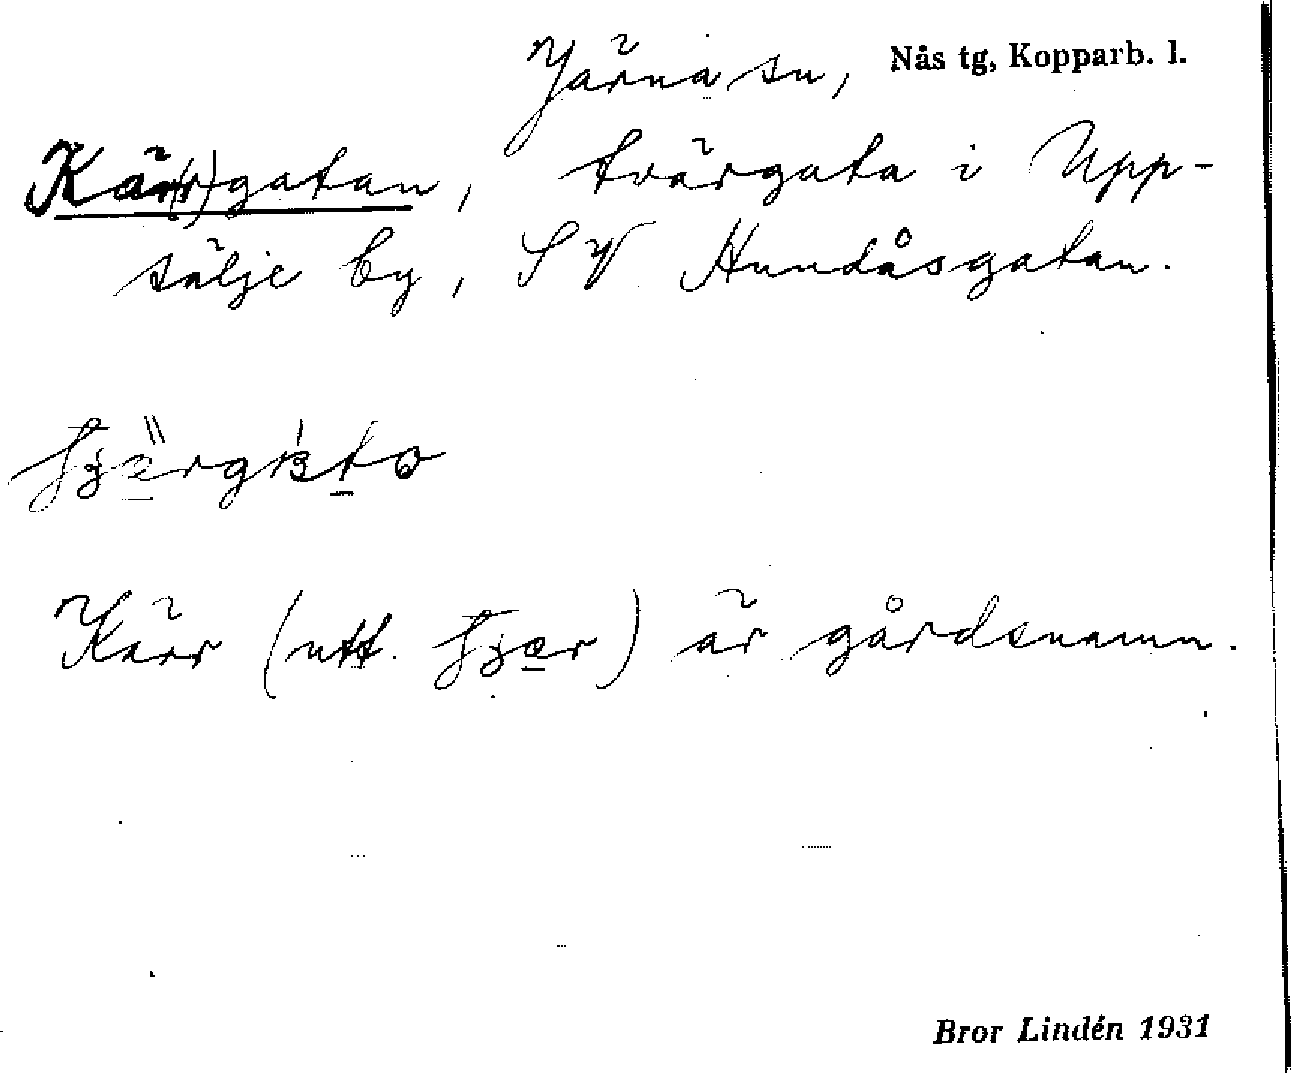 Järna sn, Nås tg, Kopparb. l.
Kär(r)gatan, tvärgata i Upp-
sälje by, SV Hundåsgatan.
Kärr (utt. ) är gårdsnamn.
Bror Lindén 1931